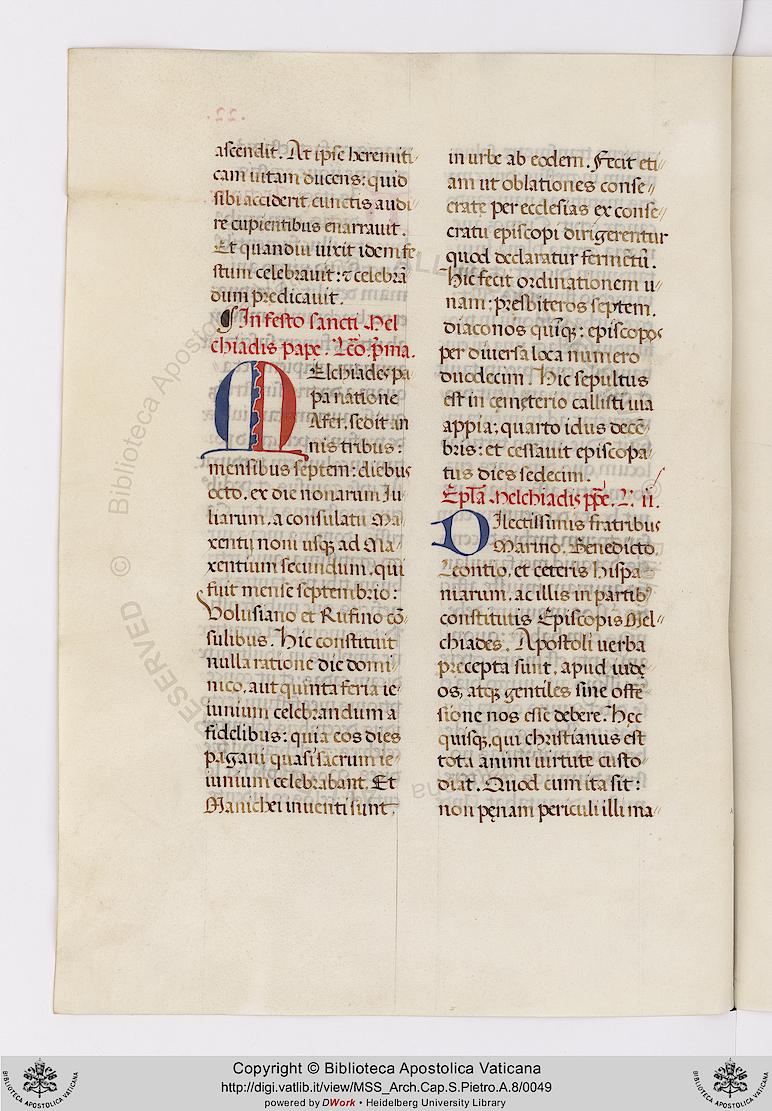 .22.
ascendit. At ipse heremiti-
cam uitam ducens: quid
sibi acciderit cunctis audi-
re cupientibus enarrauit.
Et quandiu uixit idem fe
stum celebrauit: ⁊ celebrã
dum predicauit.
¶ In festo sancti Mel
chiadis pape. Lc̃o. p̃ma.
MElchiades pa
pa natione
Afer. sedit an
nis tribus:
mensibus septem: diebus
octo. ex die nonarum Iu-
liarum. a consulatu Ma-
xentij noni usq; ad Ma-
xentium secundum. qui
fuit mense septembrio:
Volusiano et Rufino cõ-
sulibus. Hic constituit
nulla ratione die domi-
nico. aut quinta feria ie-
iunium celebrandum a
fidelibus: quia eos dies
pagani quasi sacrum ie-
iunium celebrabant. Et
Manichei inuenti sunt
in urbe ab eodem. Fecit eti-
am ut oblationes conse-
crate per ecclesias ex conse-
cratu episcopi dirigerentur
quod declaratur fermẽtũ.
Hic fecit ordinationem u-
nam: presbiteros septem.
diaconos quĩq;: episcopos
per diuersa loca numero
duodecim. Hic sepultus
est in cemeterio callisti uia
appia: quarto idus decẽ-
bris: et cessauit episcopa-
tus dies sedecim.
Epl̃a Melchiadis pp̃e. L. ii.
DIlectissimis fratribus
Marino. Benedicto.
Leontio. et ceteris hispa-
niarum. ac illis in partib9
constitutis Episcopis Mel-
chiades. Apostoli uerba
precepta sunt. apud iudę-
os, atq; gentiles sine offẽ-
sione nos esse debere. Hęc
quisq; qui christianus est
tota animi uirtute custo-
diat. Quod cum ita sit:
non pęnam periculi illi ma-
© Biblioteca Apostolica Vaticana
ALL
RESERVED
Copyright © Biblioteca Apostolica Vaticana
http://digi.vatlib.it/view/MSS_Arch.Cap.S.Pietro.A.8/0049
powered by DWork • Heidelberg University Library
BIBLIOTECA APOSTOLICA VATICANA
BIBLIOTECA APOSTOLICA VATICANA